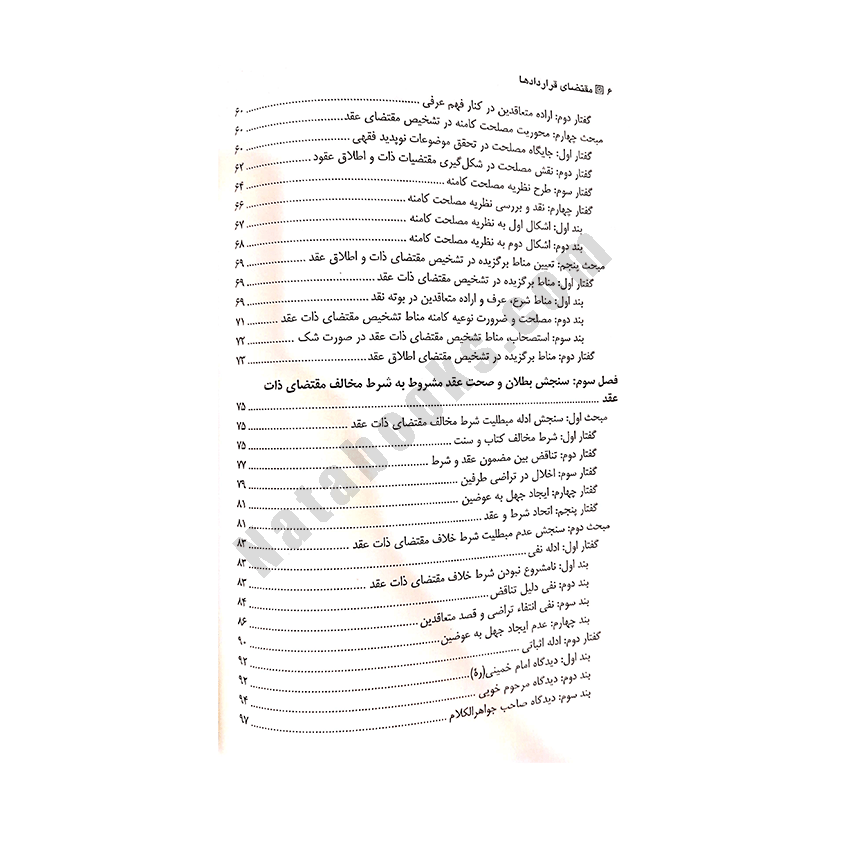 ۶ مقتضای قراردادها
گفتار دوم: اراده متعاقدین در کنار فهم عرفی ۶۰
مبحث چهارم: محوریت مصلحت کامنه در تشخیص مقتضای عقد ۶۰
گفتار اول: جایگاه مصلحت در تحقق موضوعات نوپدید فقهی ۶۰
گفتار دوم: نقش مصلحت در شکل‌گیری مقتضیات ذات و اطلاق عقود ۶۲
گفتار سوم: طرح نظریه مصلحت کامنه ۶۴
گفتار چهارم: نقد و بررسی نظریه مصلحت کامنه ۶۶
بند اول: اشکال اول به نظریه مصلحت کامنه ۶۷
بند دوم: اشکال دوم به نظریه مصلحت کامنه ۶۸
مبحث پنجم: تعیین مناط برگزیده در تشخیص مقتضای ذات و اطلاق عقد ۶۹
گفتار اول: مناط برگزیده در تشخیص مقتضای ذات عقد ۶۹
بند اول: مناط شرع، عرف و اراده متعاقدین در بوته نقد ۶۹
بند دوم: مصلحت و ضرورت نوعیه کامنه مناط تشخیص مقتضای ذات عقد ۷۱
بند سوم: استصحاب، مناط تشخیص مقتضای ذات عقد در صورت شک ۷۲
گفتار دوم: مناط برگزیده در تشخیص مقتضای اطلاق عقد ۷۳
فصل سوم: سنجش بطلان و صحت عقد مشروط به شرط مخالف مقتضای ذات
عقد ۷۵
مبحث اول: سنجش ادله مبطلیت شرط مخالف مقتضای ذات عقد ۷۵
گفتار اول: شرط مخالف کتاب و سنت ۷۵
گفتار دوم: تناقض بین مضمون عقد و شرط ۷۷
گفتار سوم: اخلال در تراضی طرفین ۷۹
گفتار چهارم: ایجاد جهل به عوضین ۸۱
گفتار پنجم: اتحاد شرط و عقد ۸۱
مبحث دوم: سنجش عدم مبطلیت شرط خلاف مقتضای ذات عقد ۸۳
گفتار اول: ادله نفی ۸۳
بند اول: نامشروع نبودن شرط خلاف مقتضای ذات عقد ۸۳
بند دوم: نفی دلیل تناقض ۸۴
بند سوم: نفی انتفاء تراضی و قصد متعاقدین ۸۶
بند چهارم: عدم ایجاد جهل به عوضین ۹۰
گفتار دوم: ادله اثباتی ۹۲
بند اول: دیدگاه امام خمینی(ره) ۹۲
بند دوم: دیدگاه مرحوم خویی ۹۴
بند سوم: دیدگاه صاحب جواهرالکلام ۹۷
Natabooks.com